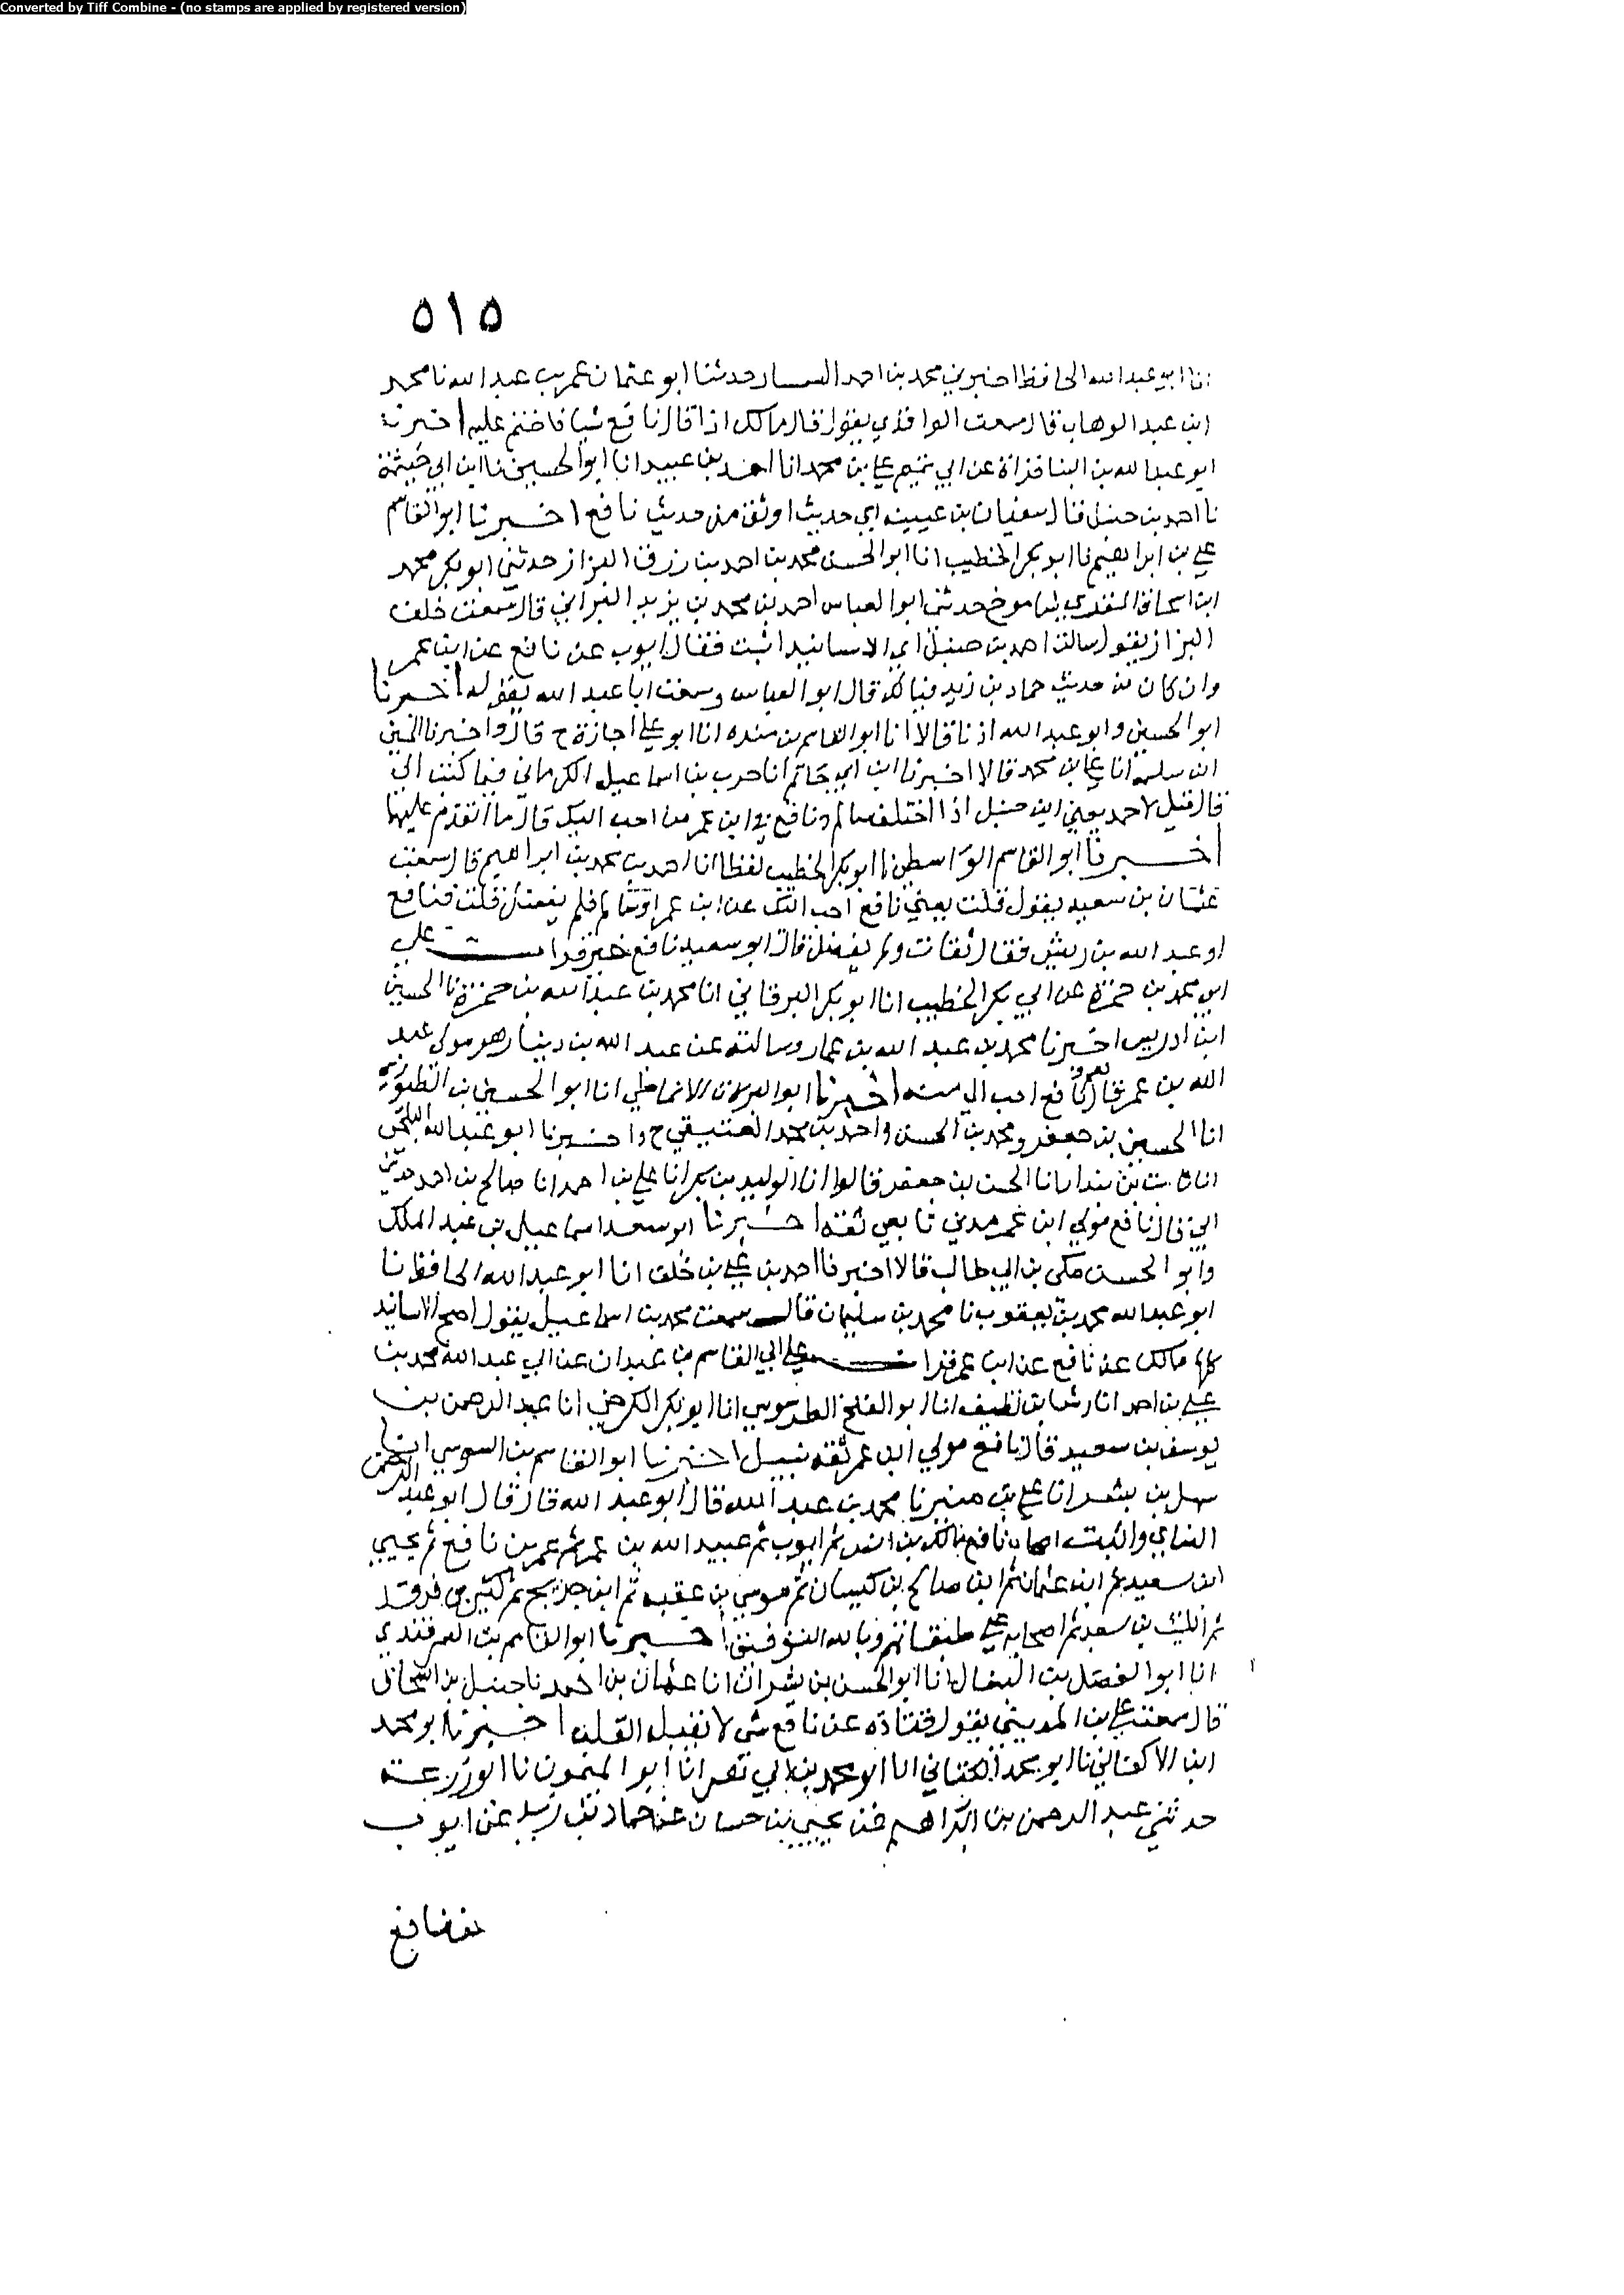 Converted by Tiff Combine - (no stamps are applied by registered version)
٥١٥
انا ابو عبد الله الحافظ اخبرني محمد بن احمد حدثنا ابو عثمان عمر بن عبد الله نا محمد
ابن عبد الوهاب قال سمعت الواقدي يقول قال مالك اذا قال نافع شيا فاختم عليه اخبرنا
ابو عبد الله بن البنا قراة عن ابي تميم علي بن محمد انا احمد بن عبيد انا ابو الحسين نا ابن ابي خيثمة
نا احمد بن حنبل قال سفيان بن عيينه اي حديث اوثق من حديث نافع اخبرنا ابو القاسم
علي بن ابراهيم نا ابو بكر الخطيب انا ابو الحسن محمد بن احمد بن رزق البزاز حدثني ابو بكر محمد
ابن اسحاق حدثني ابو العباس احمد بن محمد بن يزيد قال سمعت خلف
البزاز يقول سالت احمد بن حنبل اي الاسانيد اثبت فقال ايوب عن نافع عن ابن عمر
وان كان من حديث حماد بن زيد فيالك قال ابو العباس وسمعت ابا عبد الله يقوله اخبرنا
ابو الحسين وابو عبد الله اذنا قالا انا ابو القاسم بن منده انا ابو علي اجازة ح قال واخبرنا الحسين
ابن سلمة انا علي بن محمد قالا اخبرنا ابن ابي حاتم انا حرب بن اسماعيل الكرماني فيما كتب الي
قال قيل لاحمد يعني ابن حنبل اذا اختلف سالم ونافع في ابن عمر من احب اليك قال ما اتقدم عليهما
اخبرنا ابو القاسم الواسطي نا ابو بكر الخطيب لفظا انا احمد بن محمد بن ابراهيم قال سمعت
عثمان بن سعيد يقول قلت يعني نافع احب اليك عن ابن عمر او سالم فلم يفضل قلت فنافع
او عبد الله بن دينار فقال ثقات ولم يفضل قال ابو سعيد نافع خير قرات علي
ابي محمد بن حمزة عن ابي بكر الخطيب انا ابو بكر البرقاني انا محمد بن عبد الله بن حمزة نا الحسين
ابن ادريس اخبرنا محمد بن عبد الله بن عمار وسالته عن عبد الله بن دينار هو مولى عبد
الله بن عمر قال نعم ونافع احب الي منه اخبرنا ابو البركات الانماطي انا ابو الحسين بن الطيوري
انا الحسين بن جعفر ومحمد بن الحسن واحمد بن محمد العتيقي ح واخبرنا ابو عبد الله البلخي
انا ثابت بن بندار انا الحسين بن جعفر قالوا انا الوليد بن بكر انا علي بن احمد انا صالح بن احمد حدثني
ابي قال نافع مولي ابن عمر مدني تابعي ثقة اخبرنا ابو سعد اسماعيل بن عبد الملك
وابو الحسن مكي بن ابي طالب قالا اخبرنا احمد بن علي بن خلف انا ابو عبد الله الحافظ نا
ابو عبد الله محمد بن يعقوب نا محمد بن سليمان قال سمعت محمد بن اسماعيل يقول اصح الاسانيد
كلها مالك عن نافع عن ابن عمر قرات علي ابي القاسم بن عبدان عن ابي عبد الله محمد بن
علي بن احمد انا رشا بن نظيف انا ابو الفتح الطرسوسي انا ابو بكر الكرخي انا عبد الرحمن بن
يوسف بن سعيد قال نافع مولي ابن عمر ثقة نبيل اخبرنا ابو القاسم بن السوسي انبا
سهل بن بشر انا علي بن منير نا محمد بن عبد الله قال ابو عبد الله قال قال ابو عبد الرحمن
النساي واثبت اصحاب نافع مالك بن انس ثم ايوب ثم عبيد الله بن عمر ثم عمر بن نافع ثم يحيي
ابن سعيد ثم ابن عثمان ثم ابن صالح بن كيسان ثم موسي بن عقبه ثم ابن جريج ثم كثير بن فرقد
ثم الليث بن سعد ثم اصحابه علي طبقاتهم وبالله التوفيق اخبرنا ابو القاسم بن السمرقندي
انا ابو الفضل بن البقال انا ابو الحسن بن بشران انا عثمان بن احمد نا حنبل بن اسحاق
قال سمعت علي بن المديني يقول قتادة عن نافع شي لا يقبله القلب اخبرنا ابو محمد
ابن الاكفاني نا ابو محمد الكتاني انا ابو محمد بن ابي نصر انا ابو الميمون نا ابو زرعة
حدثني عبد الرحمن بن ابراهيم عن يحيي بن حسان عن حماد بن زيد عن ايوب